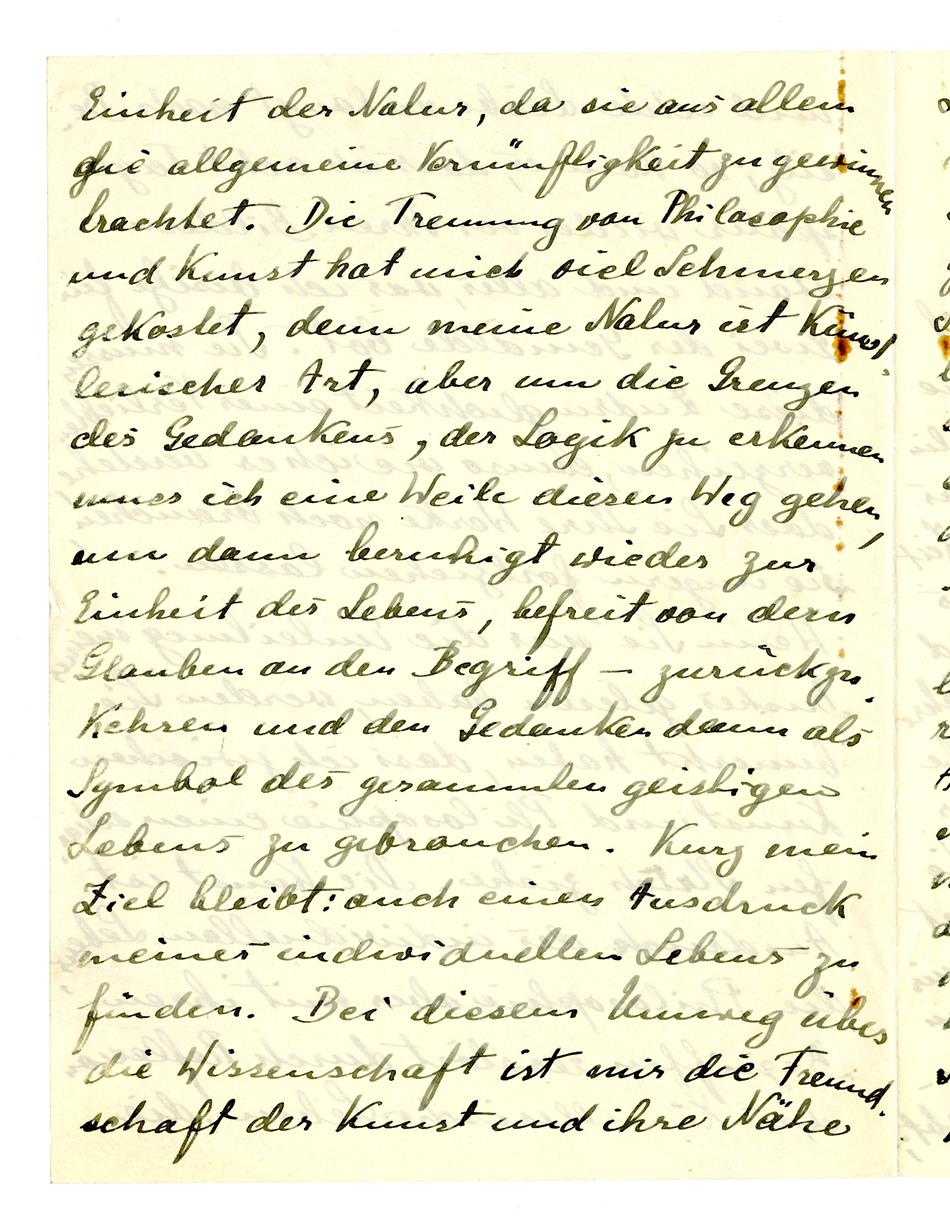 Einheit der Natur, da sie aus allem
die allgemeine Vernünftigkeit zu gewinnen
trachtet. Die Trennung von Philosophie
und Kunst hat mich viel Schmerzen
gekostet, denn meine Natur ist Künst-
lerischer Art, aber um die Grenzen
des Gedankens, der Logik zu erkennen
muss ich eine Weile diesen Weg gehen,
um dann beruhigt wieder zur
Einheit des Lebens, befreit von dem
Glauben an den Begriff – zurückzu-
kehren und den Gedanken dann als
Symbol des gesammten geistigen
Lebens zu gebrauchen. Kurz mein
Ziel bleibt: auch einen Ausdruck
meines individuellen Lebens zu
finden. Bei diesem Umweg über
die Wissenschaft ist mir die Freund-
schaft der Kunst und ihre Nähe